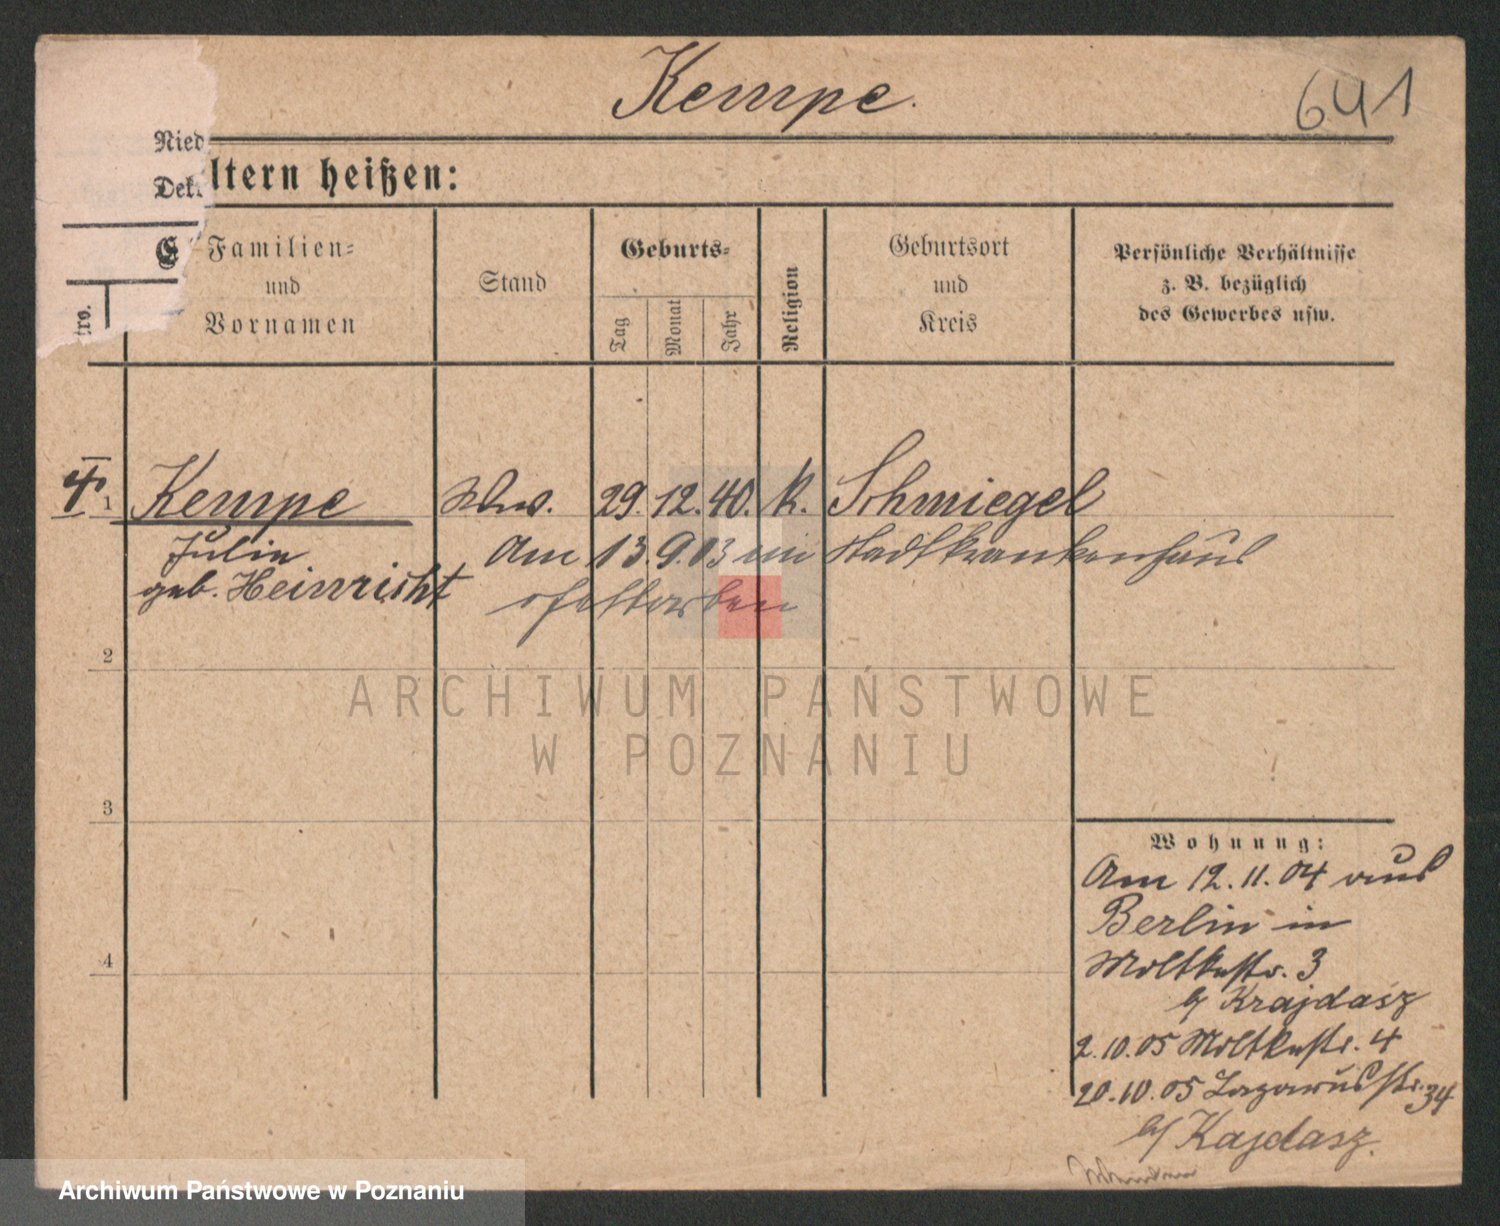 Kempe.
641
Nied
Dek
ltern heißen:
E
Familien-
und
Vornamen
Stand
Geburts-
Tag
Monat
Jahr
Religion
Geburtsort
und
Kreis
Persönliche Verhältnisse
z. B. bezüglich
des Gewerbes usw.
tro.
1 Kempe Ww. 29. 12. 40. k. Schmiegel
Julia Am 13. 9. 13 im Stadtkrankenhaus
geb. Heinricht
2
ARCHIWUM PAŃSTWOWE
W POZNANIU
3
Wohnung:
Am 12. 11. 04 aus
Berlin in
Moltkestr. 3
b/ Krajdasz
4
2. 10. 05 Moltkestr. 4
20. 10. 05 Lazarusstr. 34
b/ Kajdasz.
Archiwum Państwowe w Poznaniu